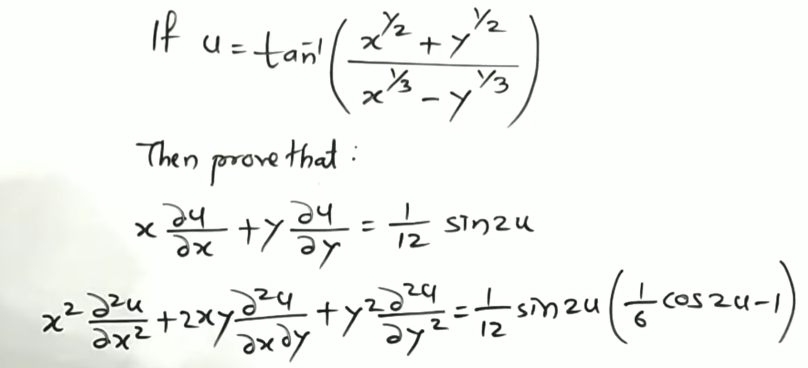 If u = tan⁻¹ ( (x^1/2 + y^1/2) / (x^1/3 - y^1/3) )
Then prove that :
x ∂u/∂x + y ∂u/∂y = 1/12 sin2u
x² ∂²u/∂x² + 2xy ∂²u/∂x∂y + y² ∂²u/∂y² = 1/12 sin2u ( 1/6 cos2u - 1 )